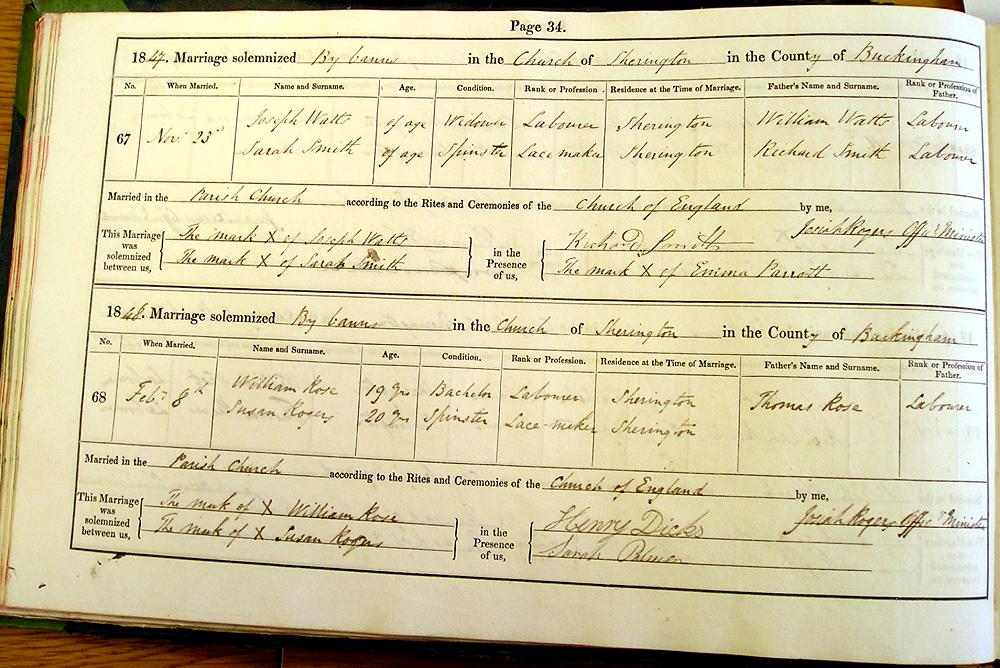 Page 34.
1847. Marriage solemnized By banns in the Church of Sherington in the County of Buckingham
No. When Married. Name and Surname. Age. Condition. Rank or Profession. Residence at the Time of Marriage. Father's Name and Surname. Rank or Profession of Father.
67 Nov. 23d Joseph Watts of age Widower Labourer Sherington William Watts Labourer
Sarah Smith of age Spinster Lace maker Sherington Richard Smith Labourer
Married in the Parish Church according to the Rites and Ceremonies of the Church of England by me,
Josiah Rogers Offg Minister
This Marriage was solemnized between us,
The mark X of Joseph Watts
The mark X of Sarah Smith
in the Presence of us,
Richard Smith
The mark X of Emma Parrott
1848. Marriage solemnized By banns in the Church of Sherington in the County of Buckingham
No. When Married. Name and Surname. Age. Condition. Rank or Profession. Residence at the Time of Marriage. Father's Name and Surname. Rank or Profession of Father.
68 Feby 8th William Rose 19 yrs Bachelor Labourer Sherington Thomas Rose Labourer
Susan Rogers 20 yrs Spinster Lace-maker Sherington
Married in the Parish Church according to the Rites and Ceremonies of the Church of England by me,
Josiah Rogers Offg Minister
This Marriage was solemnized between us,
The mark of X William Rose
The mark of X Susan Rogers
in the Presence of us,
Henry Dicks
Sarah